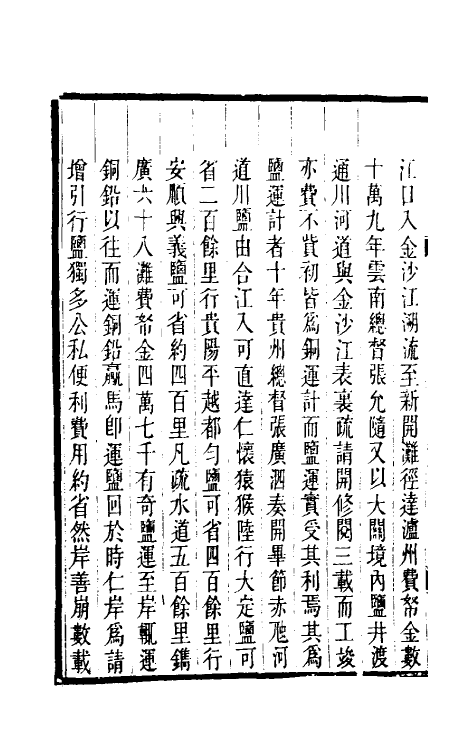 江口入金沙江溯流至新開灘徑達瀘州費帑金數
十萬九年雲南總督張允隨又以大關境內鹽井渡
通川河道與金沙江表裏疏請開修閱三載而工竣
亦費不貲初皆爲銅運計而鹽運實受其利焉其爲
鹽運計者十年貴州總督張廣泗奏開畢節赤虺河
道川鹽由合江入可直達仁懷猿猴陸行大定鹽可
省二百餘里行貴陽平越都勻鹽可省四百餘里行
安順興義鹽可省約四百里凡疏水道五百餘里鐫
廣六十八灘費帑金四萬七千有奇鹽運至岸輒運
銅鉛以往而運銅鉛羸馬卽運鹽回於時仁岸爲請
增引行鹽獨多公私便利費用約省然岸善崩數載